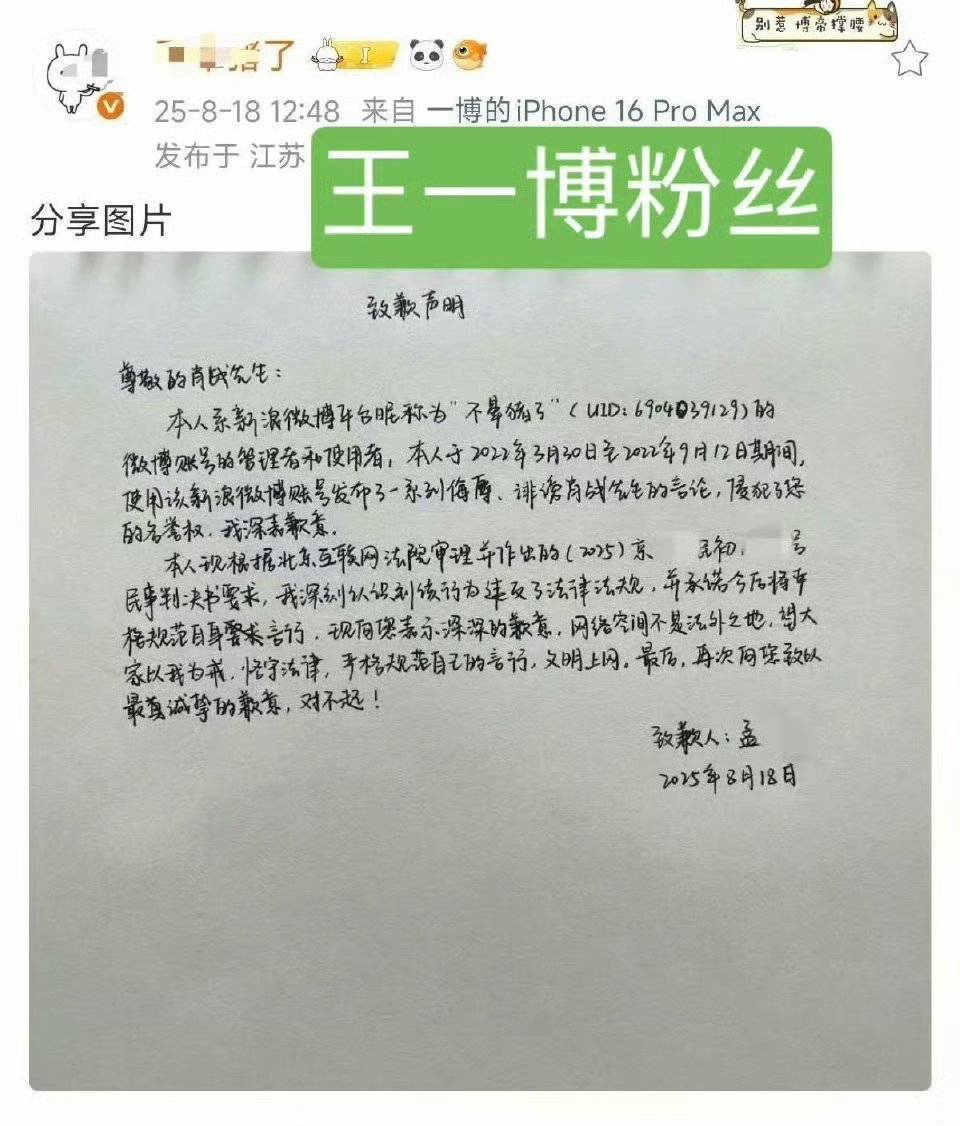 别惹 博帝撑腰
猪了
25-8-18 12:48 来自 一博的iPhone 16 Pro Max
发布于 江苏
王一博粉丝
分享图片
致歉声明
尊敬的肖战先生：
本人系新浪微博平台昵称为“不晕猪了”（UID：6904039129）的
微博账号的管理者和使用者，本人于2022年3月30日至2022年9月12日期间，
使用该新浪微博账号发布了一系列侮辱、诽谤肖战先生的言论，侵犯了您
的名誉权，我深表歉意。
本人现根据北京互联网法院审理并作出的（2025）京 民初 号
民事判决书要求，我深刻认识到该行为违反了法律法规，并承诺今后将严
格规范自身要求言行，现向您表示深深的歉意，网络空间不是法外之地，望大
家以我为戒，恪守法律，严格规范自己的言行，文明上网。最后，再次向您致以
最真诚挚的歉意，对不起！
致歉人：孟
2025年8月18日